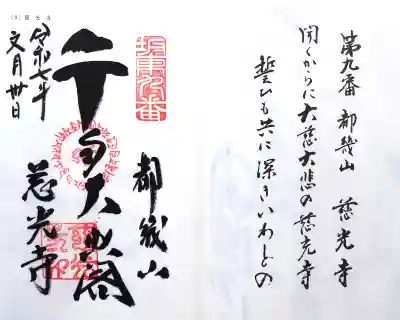 第九番 都幾山 慈光寺
聞くからに大慈大悲の慈光寺
誓ひも共に深きいわとの
坂東九番
都幾山
慈光寺
令和七年
文月卅日
(9) 慈光寺